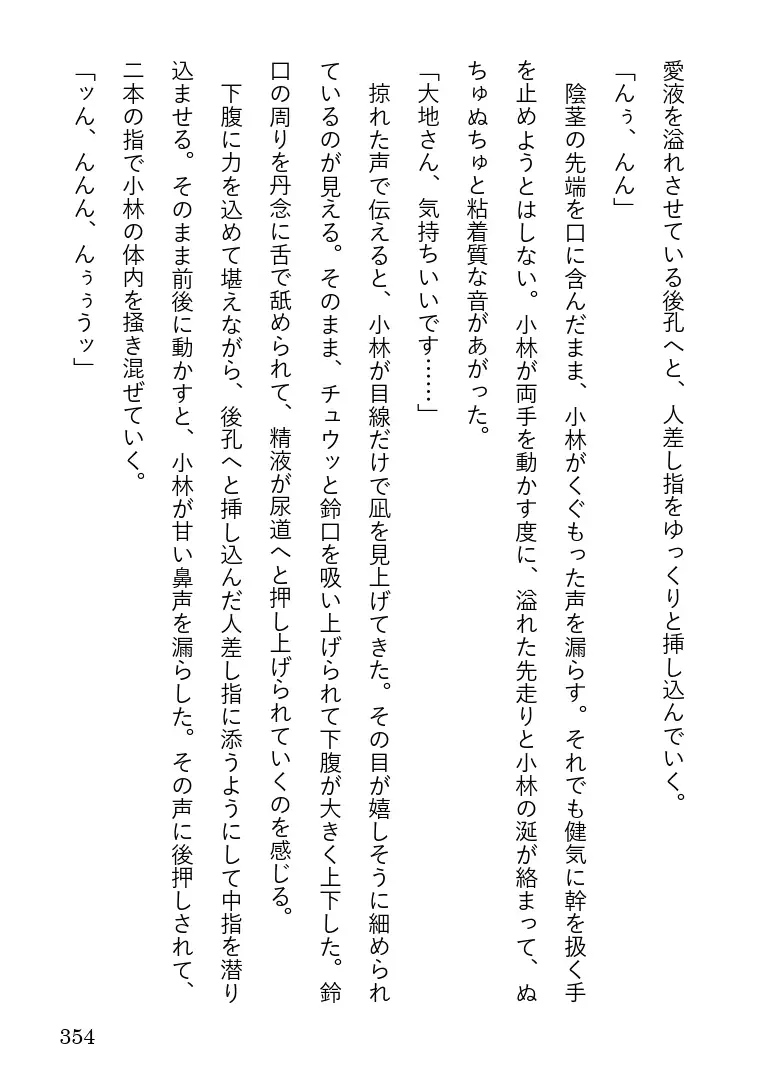 愛液を溢れさせている後孔へと、人差し指をゆっくりと挿し込んでいく。
「んぅ、んん」
陰茎の先端を口に含んだまま、小林がくぐもった声を漏らす。それでも健気に幹を扱く手
を止めようとはしない。小林が両手を動かす度に、溢れた先走りと小林の涎が絡まって、ぬ
ちゅぬちゅと粘着質な音があがった。
「大地さん、気持ちいいです……」
掠れた声で伝えると、小林が目線だけで凪を見上げてきた。その目が嬉しそうに細められ
ているのが見える。そのまま、チュウッと鈴口を吸い上げられて下腹が大きく上下した。鈴
口の周りを丹念に舌で舐められて、精液が尿道へと押し上げられていくのを感じる。
下腹に力を込めて堪えながら、後孔へと挿し込んだ人差し指に添うようにして中指を潜り
込ませる。そのまま前後に動かすと、小林が甘い鼻声を漏らした。その声に後押しされて、
二本の指で小林の体内を掻き混ぜていく。
「ッん、んんん、んぅぅうッ」
354